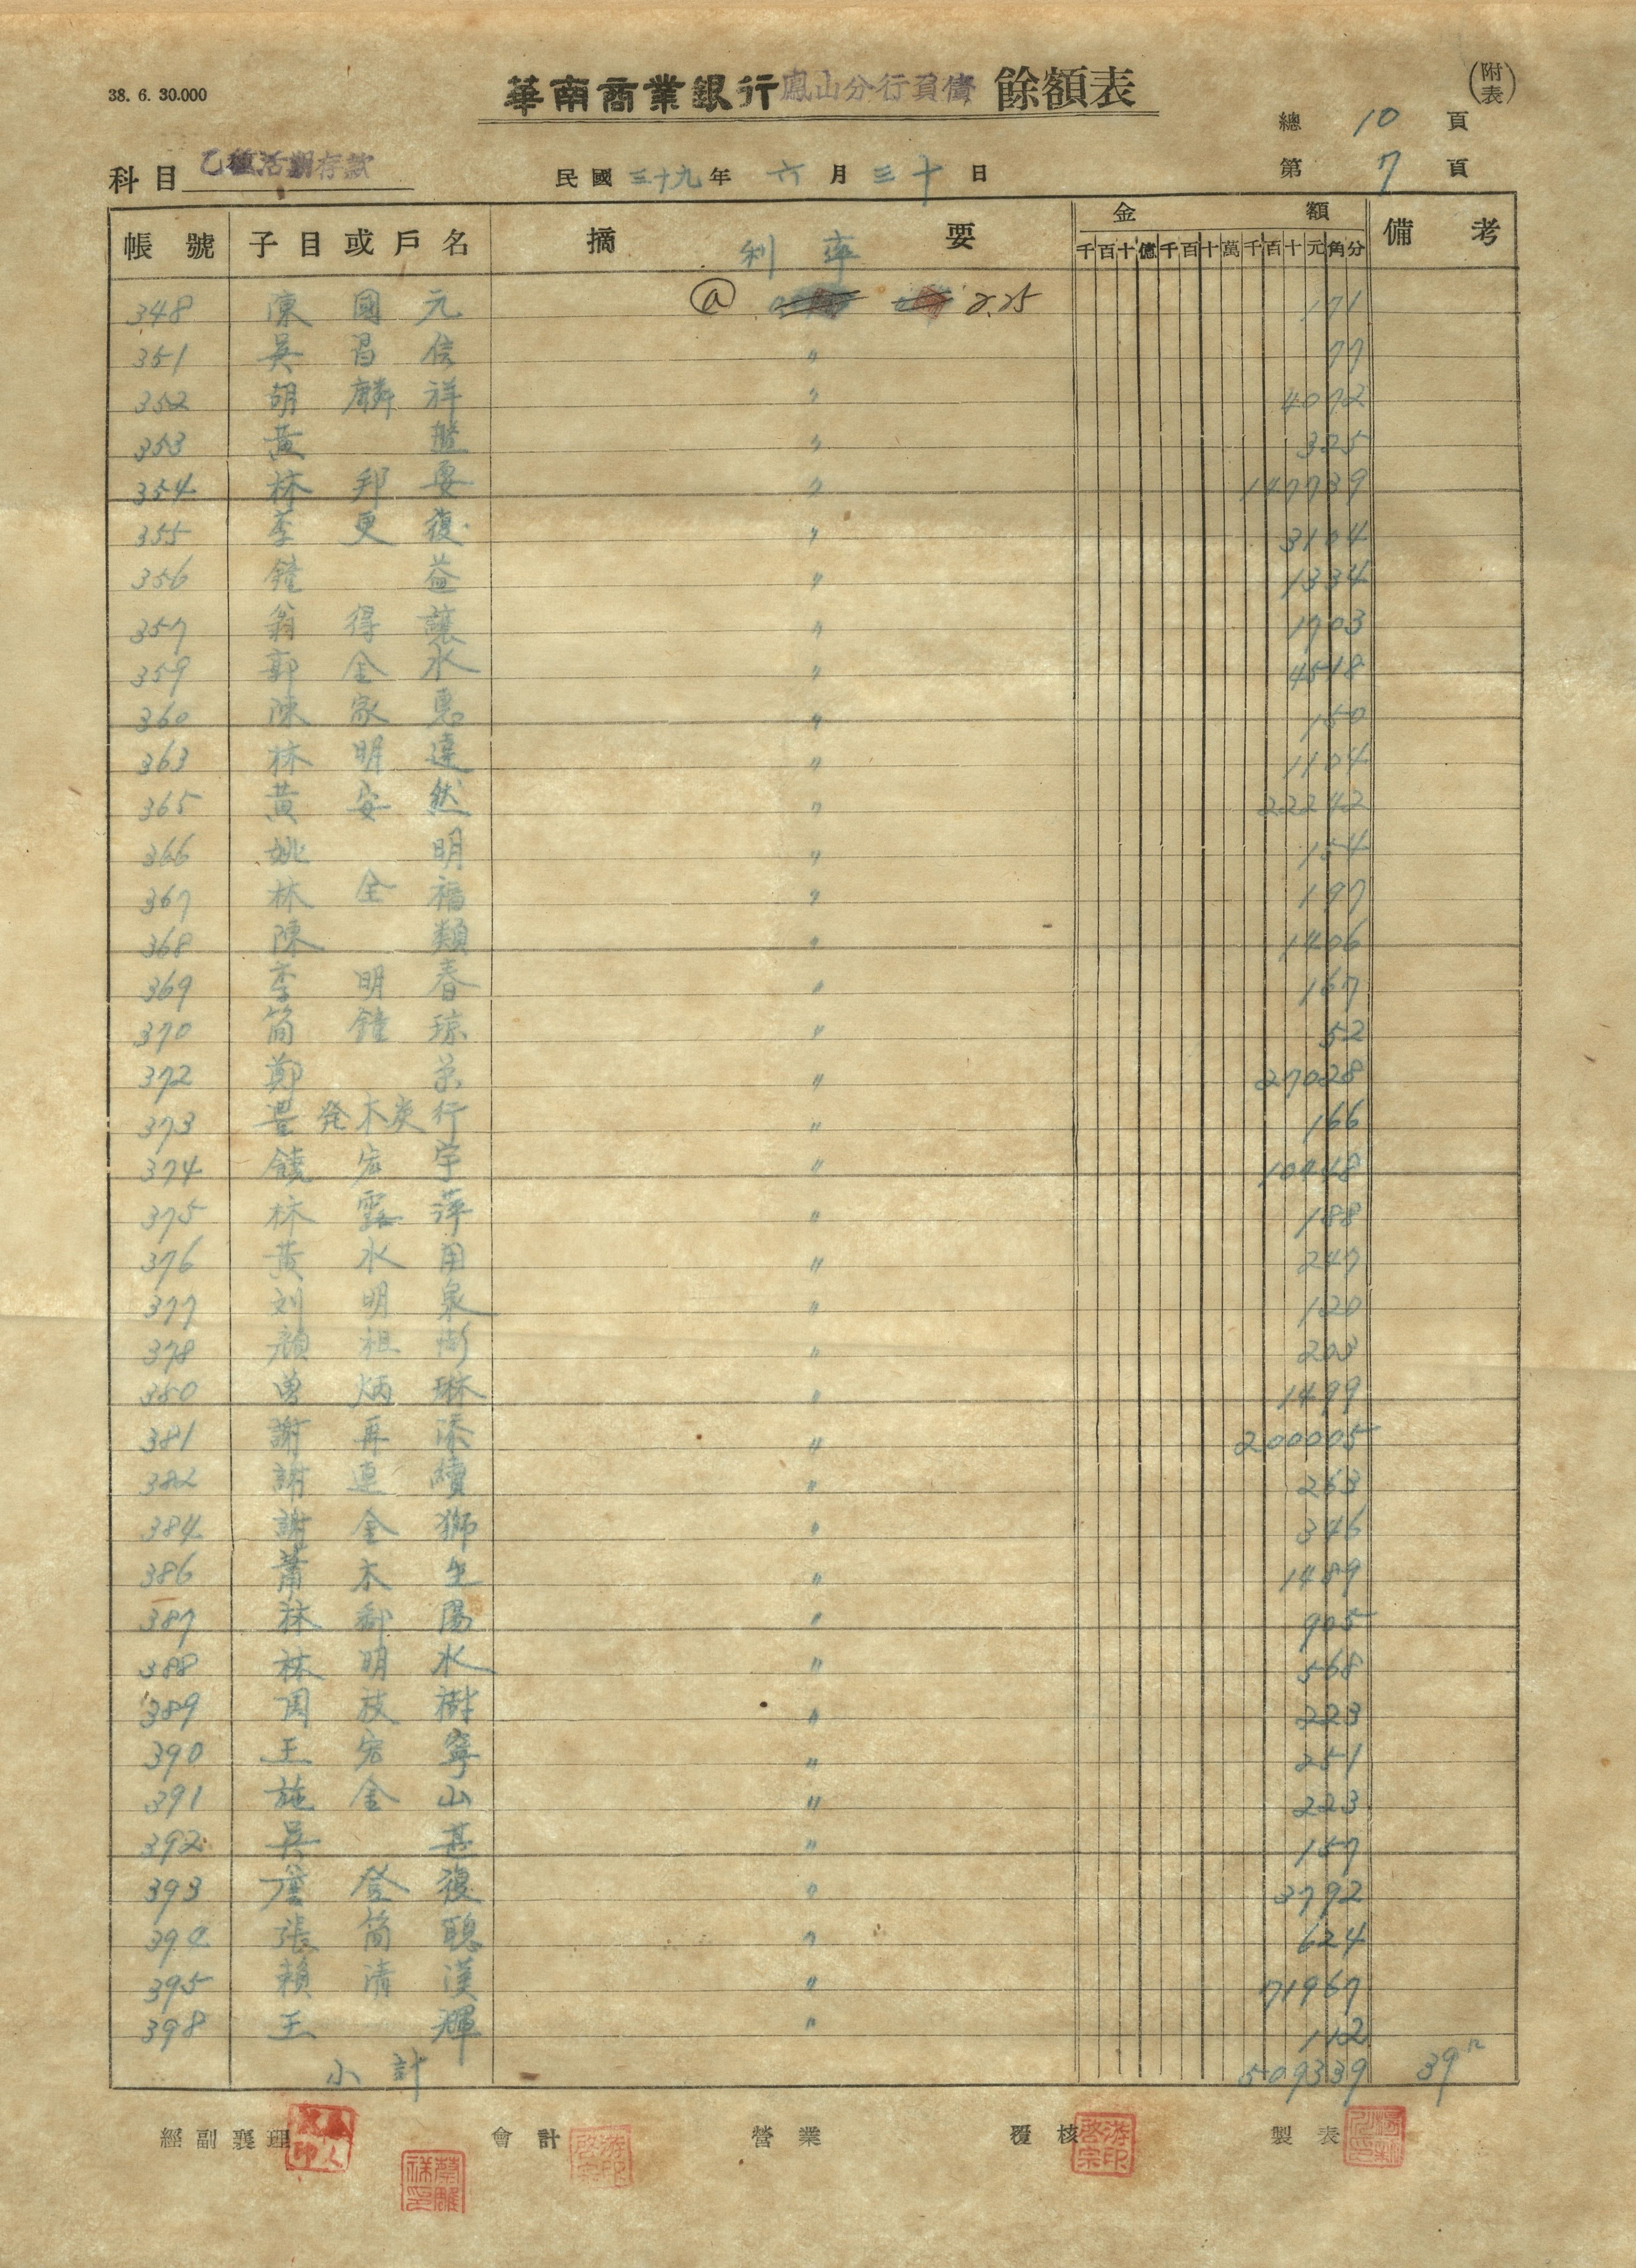 38. 6. 30.000
華南商業銀行鳳山分行負債 餘額表
(附表)
總 10 頁
科目 乙種活期存款
民國三十九年 六月三十日
第 7 頁
帳號 子目或戶名 摘要 利率 金額 備考
千百十億千百十萬千百十元角分
348 陳國元 @ 2.25 171
351 吳昌信 〃 77
352 胡麟祥 〃 4072
353 黃 〃 325
354 林邦要 〃 147739
355 李更復 〃 3104
356 鐘益 〃 1334
357 翁得讓 〃 1703
359 郭金水 〃 4518
360 陳家惠 〃 150
363 林明達 〃 1104
365 黃安然 〃 22242
366 姚明 〃 154
367 林全福 〃 197
368 陳類 〃 1406
369 李明春 〃 167
370 簡鐘琼 〃 52
372 鄭 〃 27028
373 発木炭行 〃 166
374 饒宏宇 〃 10748
375 林雲萍 〃 188
376 黃水用 〃 247
377 刘明泉 〃 120
378 顏祖 〃 203
380 曾炳琳 〃 1499
381 謝再添 〃 200005
382 謝連續 〃 263
384 謝金獅 〃 346
386 蕭木生 〃 1489
387 林鄱陽 〃 905
388 林明水 〃 568
389 周枝樹 〃 223
390 王宏寧 〃 251
391 施金山 〃 223
392 吳甚 〃 157
393 詹登復 〃 3792
394 張簡聰 〃 624
395 賴清漢 〃 71967
398 王輝 〃 112
小計 509339 39
經副襄理 會計 營業 覆核 製表